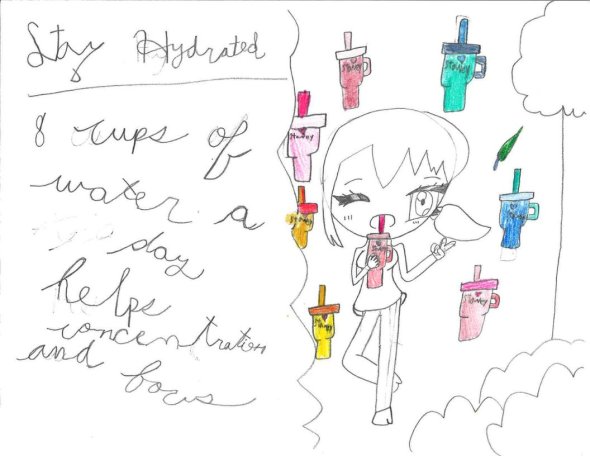 Stay Hydrated
8 cups of
water a
day
helps
concentration
and focus
Stanley
Stanley
Stanley
Stanley
Stanley
Stanley
Stanley